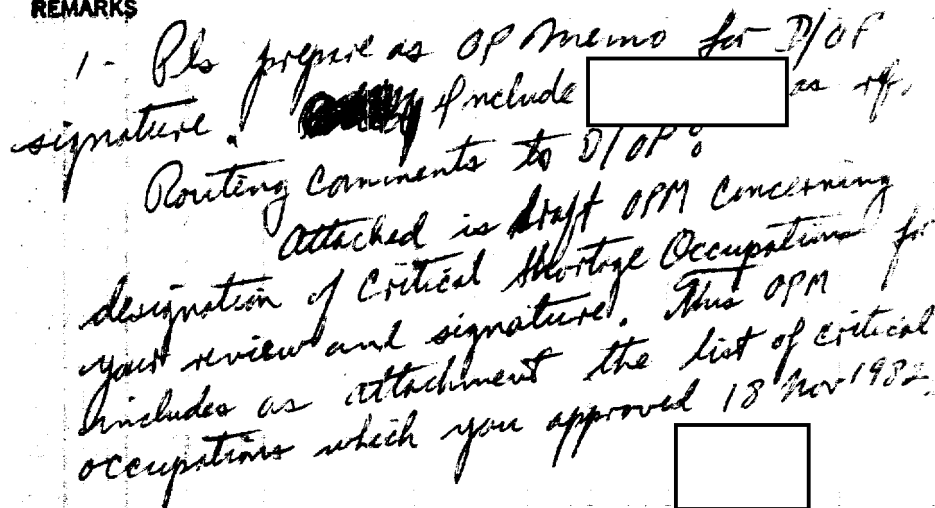 REMARKS
1- Pls prepare as OP Memo for D/OP
signature. Include as rf.
Routing Comments to D/OP:
Attached is draft OPM Concerning
designation of Critical Shortage Occupations for
your review and signature. This OPM
includes as attachment the list of critical
occupations which you approved 18 Nov 1982.